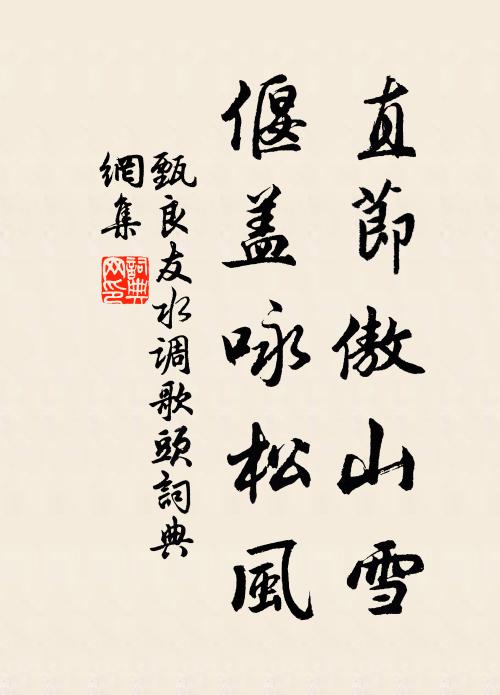 直節傲山雪
偃盖咏松風
甄良友水调歌頭詞典
網集
詞典網印